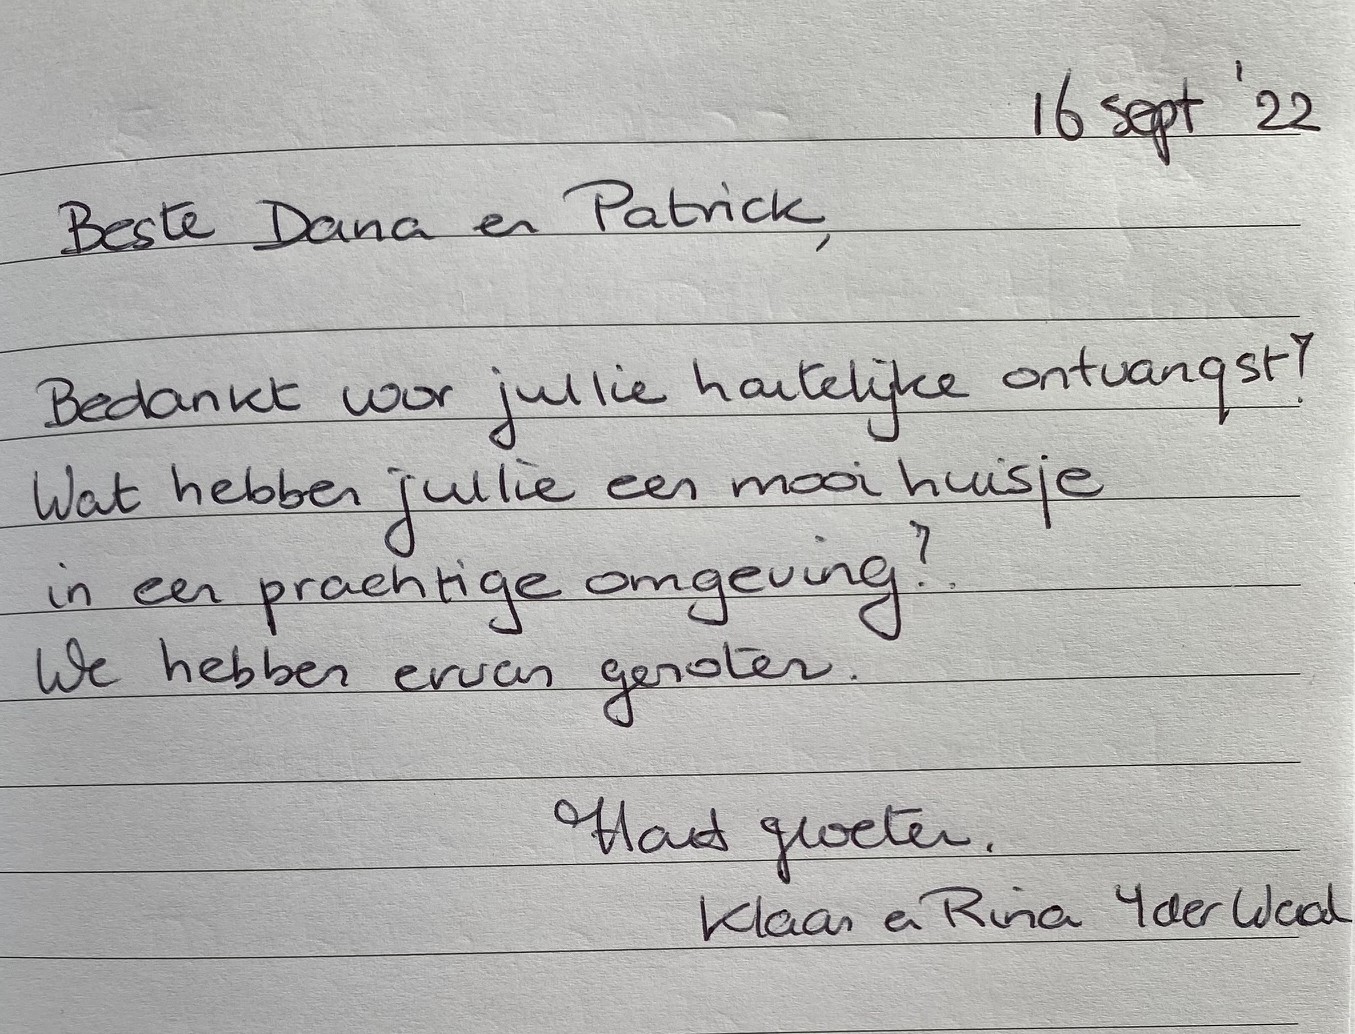 16 sept '22
Beste Dana en Patrick,
Bedankt voor jullie hartelijke ontvangst!
Wat hebben jullie een mooi huisje
in een prachtige omgeving!.
We hebben ervan genoten.
Hart groeten.
Klaas en Rina